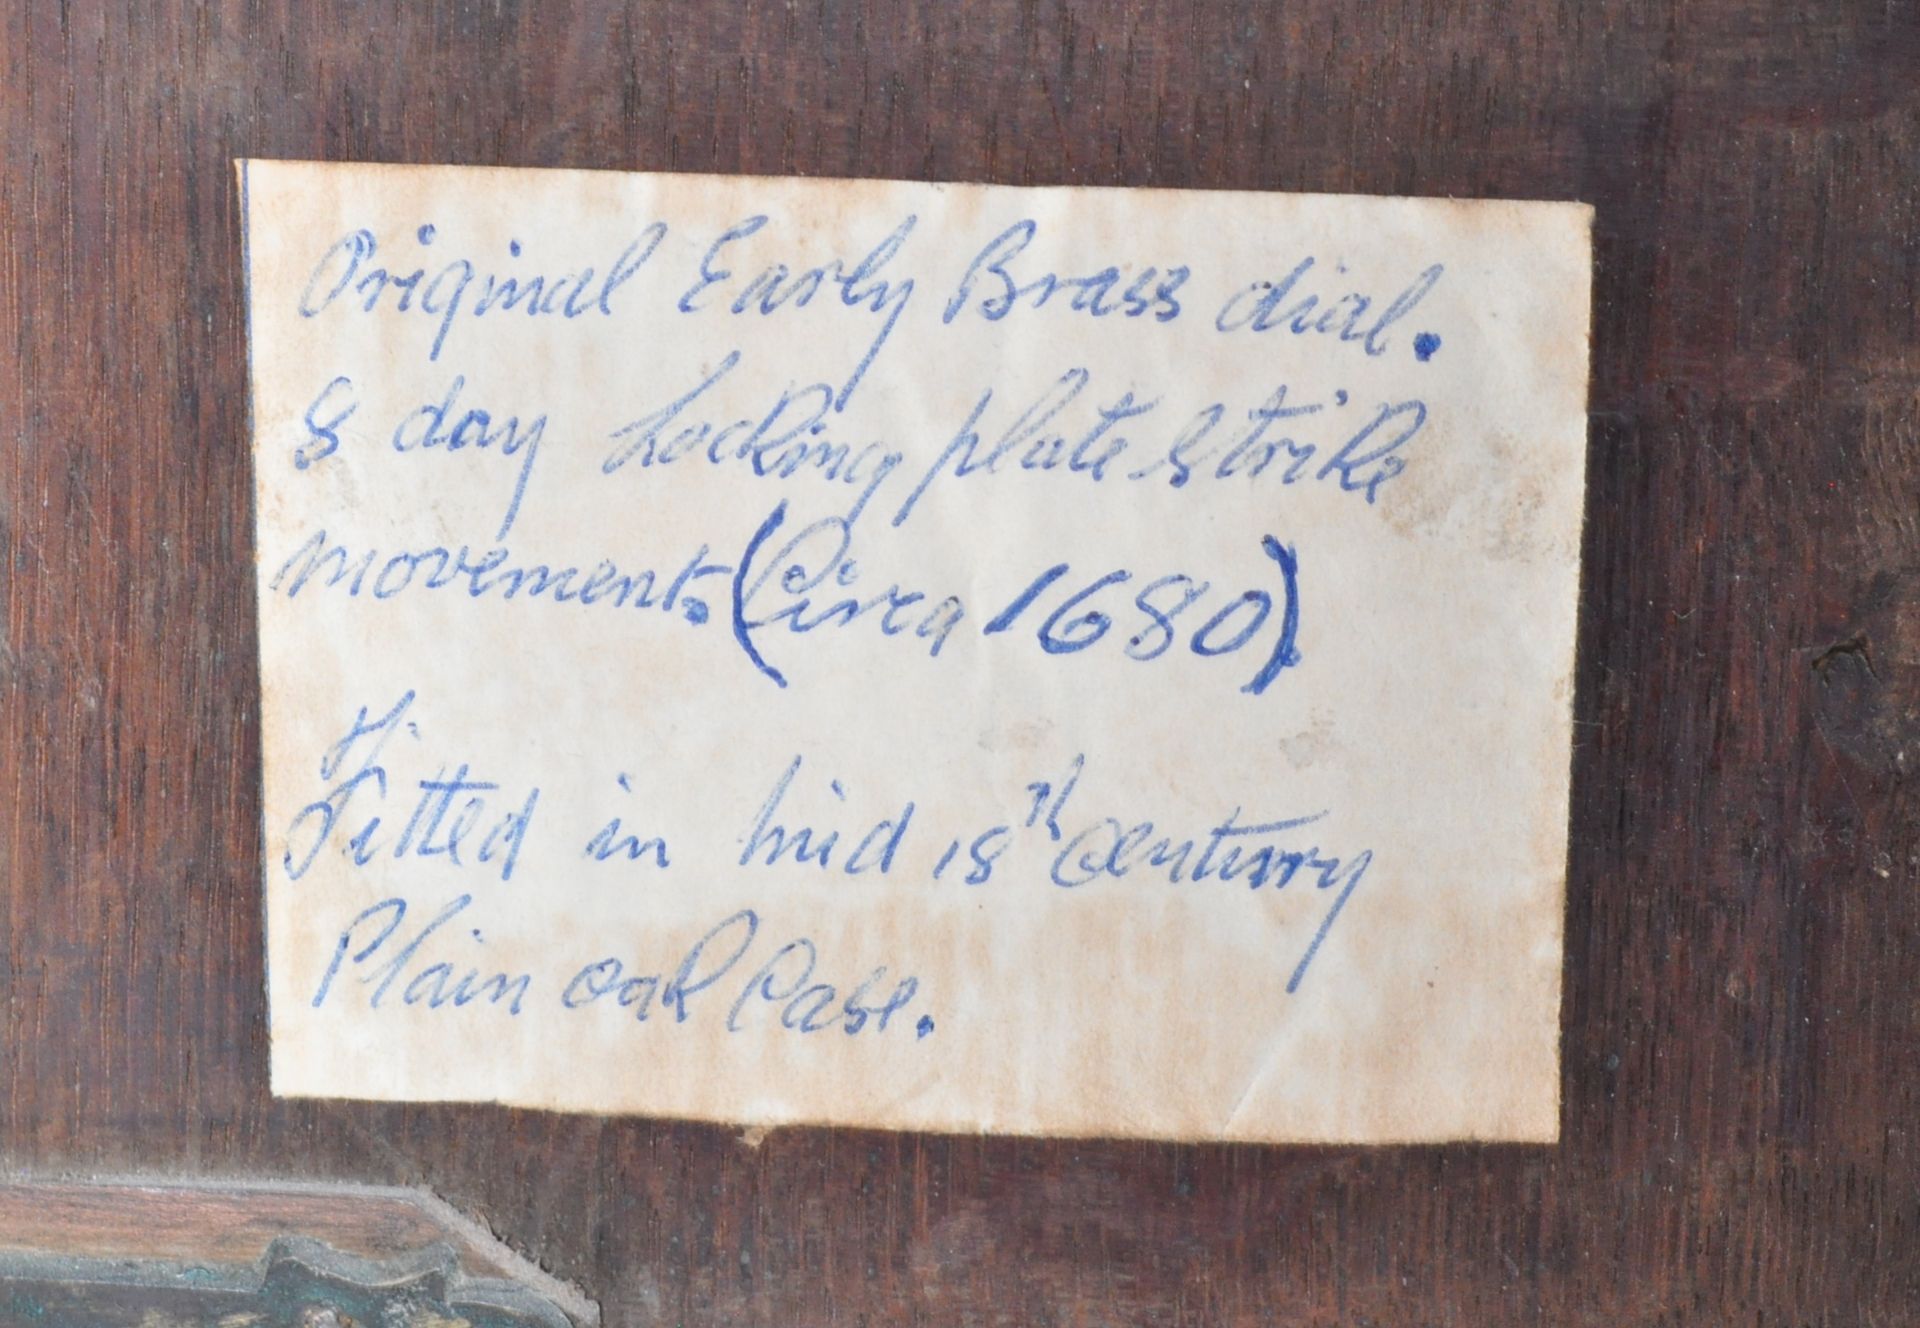 Original Early Brass dial.
8 day Locking plate strike
movement. (Circa 1680).
Fitted in mid 18th Century
Plain oak Case.